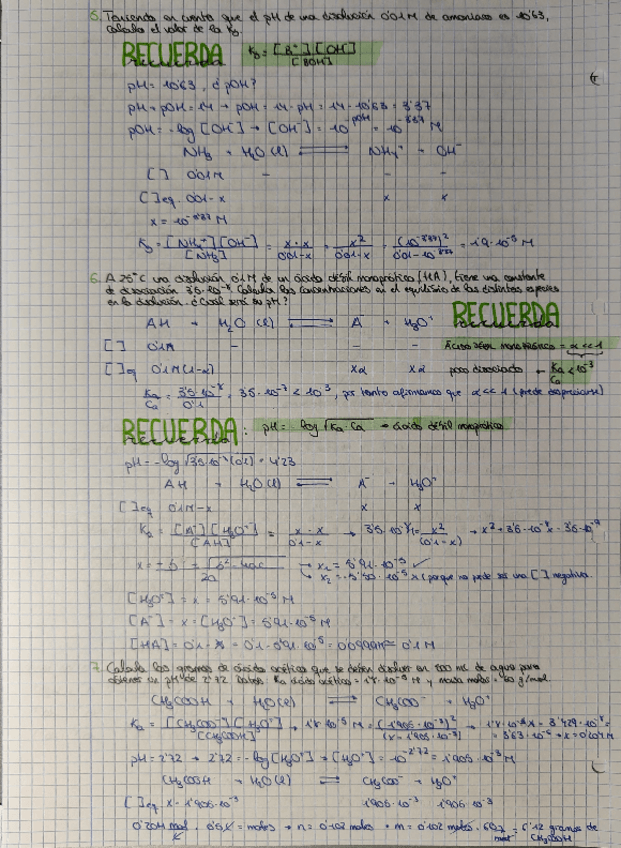 5. Teniendo en cuenta que el pH de una disolución 0'01M de amoniaco es 10'63,
calcula el valor de la Kb.
RECUERDA Kb = [B⁺][OH⁻] / [BOH]
pH = 10'63, ¿pOH?
pH + pOH = 14 → pOH = 14 - pH = 14 - 10'63 = 3'37
pOH = -log [OH⁻] → [OH⁻] = 10^-pOH = 10^-3'37 M
NH₃ + H₂O (l) ⇌ NH₄⁺ + OH⁻
[ ] 0'01M - -
[ ]eq 0'01-x x x
x = 10^-3'37 M
Kb = [NH₄⁺][OH⁻] / [NH₃] = x·x / 0'01-x = x² / 0'01-x = (10^-3'37)² / 0'01-10^-3'37 = 1'9·10⁻⁵ M
6. A 25°C una disolución 0'1M de un ácido débil monoprótico (HA), tiene una constante
de disociación 3'5·10⁻⁸. Calcula las concentraciones en el equilibrio de las distintas especies
en la disolución. ¿Cuál será su pH?
RECUERDA
AH + H₂O (l) ⇌ A⁻ + H₃O⁺
[ ] 0'1M - - -
Ácido débil monoprótico = α<<1
[ ]eq 0'1M(1-α) xα xα
poco disociado → Ka/Ca < 10⁻³
Ka/Ca = 3'5·10⁻⁸ / 0'1 = 3'5·10⁻⁷ < 10³, por tanto afirmamos que α<<1 (puede despreciarse)
RECUERDA: pH = -log √Ka·Ca → ácido débil monoprótico
pH = -log √3'5·10⁻⁸(0'1) = 4'23
AH + H₂O (l) ⇌ A⁻ + H₃O⁺
[ ]eq 0'1M-x x x
Ka = [A⁻][H₃O⁺] / [AH] = x·x / 0'1-x → 3'5·10⁻⁸ = x² / (0'1-x) → x² + 3'5·10⁻⁸x - 3'5·10⁻⁹
x = -b ± √b²-4ac / 2a → x₁ = 5'91·10⁻⁵ ✓
x₂ = (porque no puede ser una [ ] negativa.
[H₃O⁺] = x = 5'91·10⁻⁵ M
[A⁻] = x = [H₃O⁺] = 5'91·10⁻⁵ M
[HA] = 0'1 - x = 0'1 - 5'91·10⁻⁵ = 0'1M
7. Calcula los gramos de ácido acético que se deben disolver en 500 mL de agua para
obtener un pH de 2'72 Datos: Ka ácido acético = 1'8·10⁻⁵ M y masa molar = 60 g/mol.
CH₃COOH + H₂O (l) ⇌ CH₃COO⁻ + H₃O⁺
Ka = [CH₃COO⁻][H₃O⁺] / [CH₃COOH] → 1'8·10⁻⁵ M = (1'905·10⁻³)² / (x-1'905·10⁻³) → 1'8·10⁻⁵x - 3'429·10⁻⁸ =
= 3'63·10⁻⁶ → x = 0'204M
pH = 2'72 → 2'72 = -log [H₃O⁺] → [H₃O⁺] = 10^-2'72 = 1'905·10⁻³ M
CH₃COOH + H₂O (l) ⇌ CH₃COO⁻ + H₃O⁺
[ ]eq x - 1'905·10⁻³ 1'905·10⁻³ 1'905·10⁻³
0'204 mol/L · 0'5L = moles → n = 0'102 moles → m = 0'102 moles · 60 g/mol = 6'12 gramos de
CH₃COOH